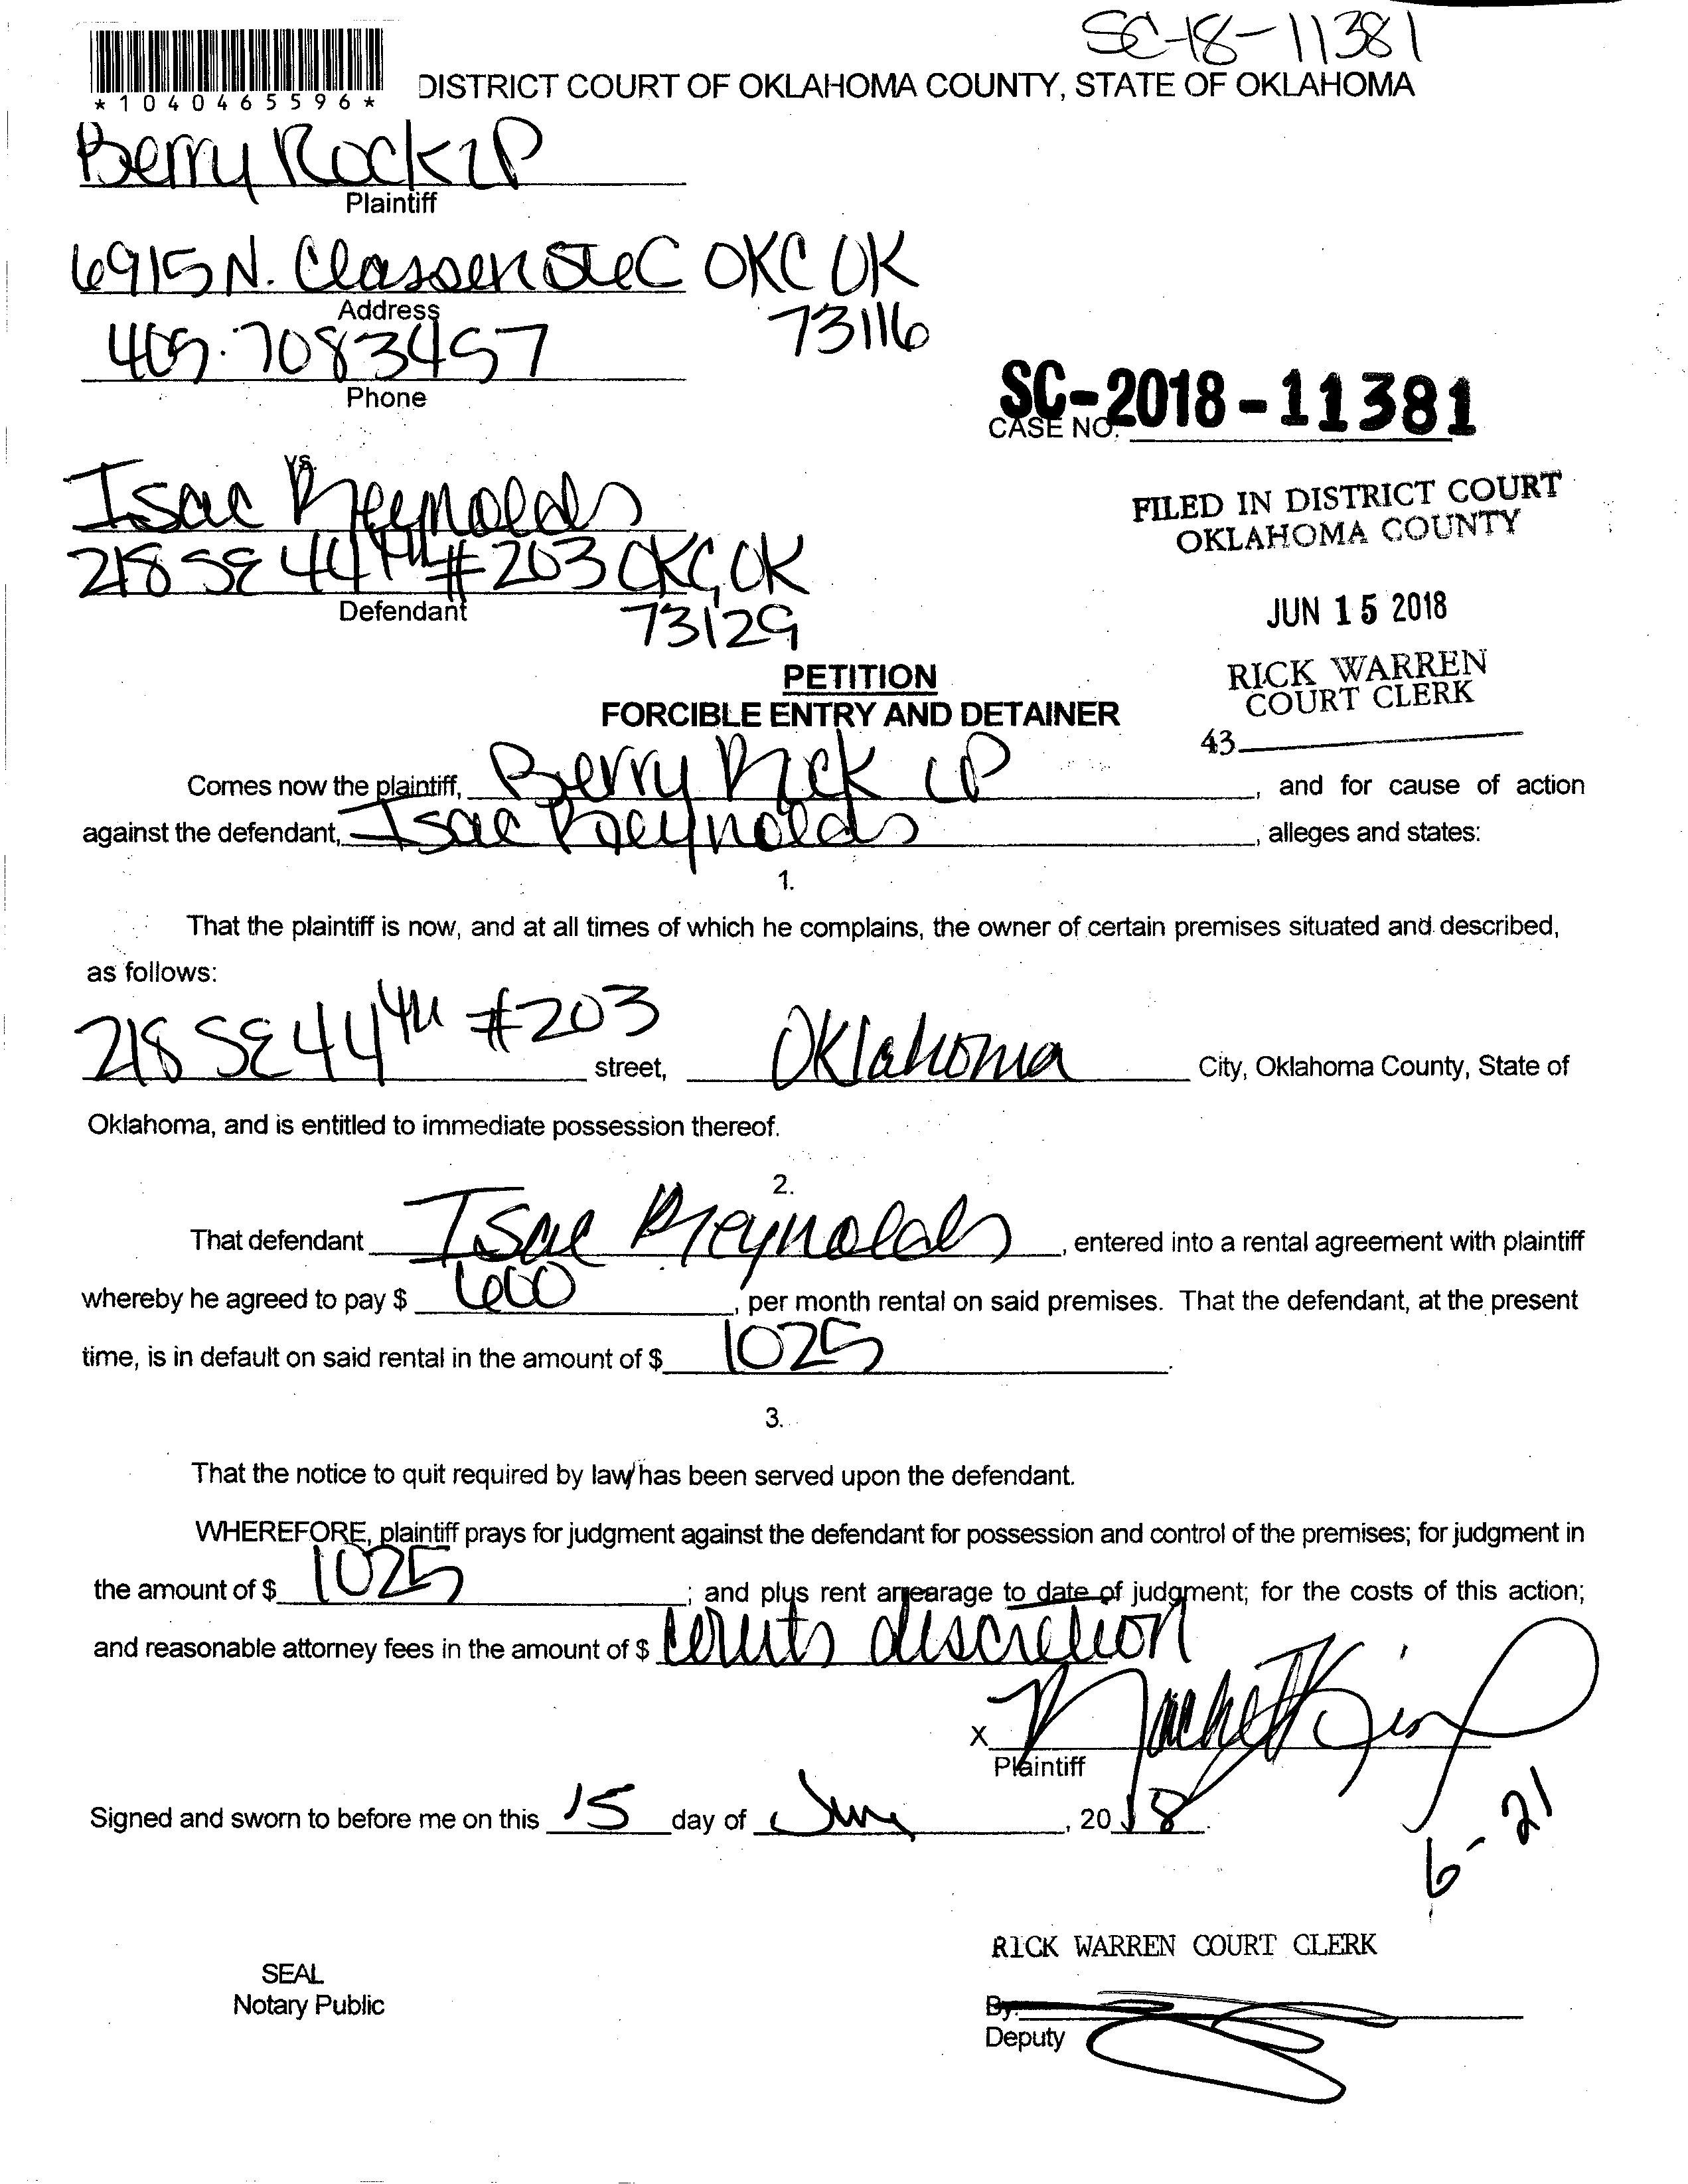 SC-18-11381
*1040465596*
DISTRICT COURT OF OKLAHOMA COUNTY, STATE OF OKLAHOMA
Berry Rock LP
Plaintiff
6915 N. Classen Ste C OKC OK
Address
73116
405.7083457
Phone
SC-2018-11381
CASE NO.
vs.
Isac Reynolds
218 SE 44th #203 OKC, OK
Defendant
73129
FILED IN DISTRICT COURT
OKLAHOMA COUNTY
JUN 15 2018
RICK WARREN
COURT CLERK
43
PETITION
FORCIBLE ENTRY AND DETAINER
Comes now the plaintiff, Berry Rock LP, and for cause of action
against the defendant, Isac Reynolds, alleges and states:
1.
That the plaintiff is now, and at all times of which he complains, the owner of certain premises situated and described,
as follows:
218 SE 44th #203 street, Oklahoma City, Oklahoma County, State of
Oklahoma, and is entitled to immediate possession thereof.
2.
That defendant Isac Reynolds, entered into a rental agreement with plaintiff
whereby he agreed to pay $ 600, per month rental on said premises. That the defendant, at the present
time, is in default on said rental in the amount of $ 1025.
3.
That the notice to quit required by law has been served upon the defendant.
WHEREFORE, plaintiff prays for judgment against the defendant for possession and control of the premises; for judgment in
the amount of $ 1025; and plus rent arrearage to date of judgment; for the costs of this action;
and reasonable attorney fees in the amount of $ courts discretion
X
Plaintiff
Signed and sworn to before me on this 15 day of June, 2018.
6-21
RICK WARREN COURT CLERK
SEAL
Notary Public
By:
Deputy